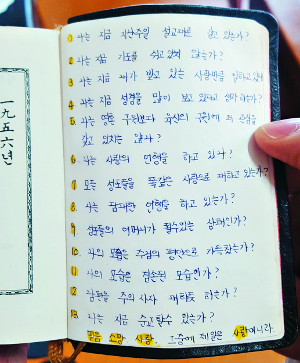 一九五六년
1 나는 지금 지난주일 설교대로 살고 있는가?
2 나는 지금 기도를 쉬고 있지 않는가?
3 나는 지금 내가 받고 있는 사랑만큼 일하고 있는가?
4 나는 지금 성경을 많이 보고 있다고 생각하는가?
5 나는 영혼 구원보다 육신의 구원에 더 관심을
갖고 있지는 않나?
6 나는 사랑의 언행을 하고 있나?
7 모든 성도들을 똑같은 사랑으로 대하고 있는가?
8 나는 담대한 언행을 하고 있는가?
9 성도들의 어머니가 될수있는 상태인가?
10. 나의 모습은 주님의 평안으로 가득찼는가?
11 나의 모습은 겸손된 모습인가?
12 남편을 주의 사자 대하듯 하는가?
13. 나는 지금 순교할수 있는가?
믿음 소망 사랑. 그중에 제일은 사랑이니라.